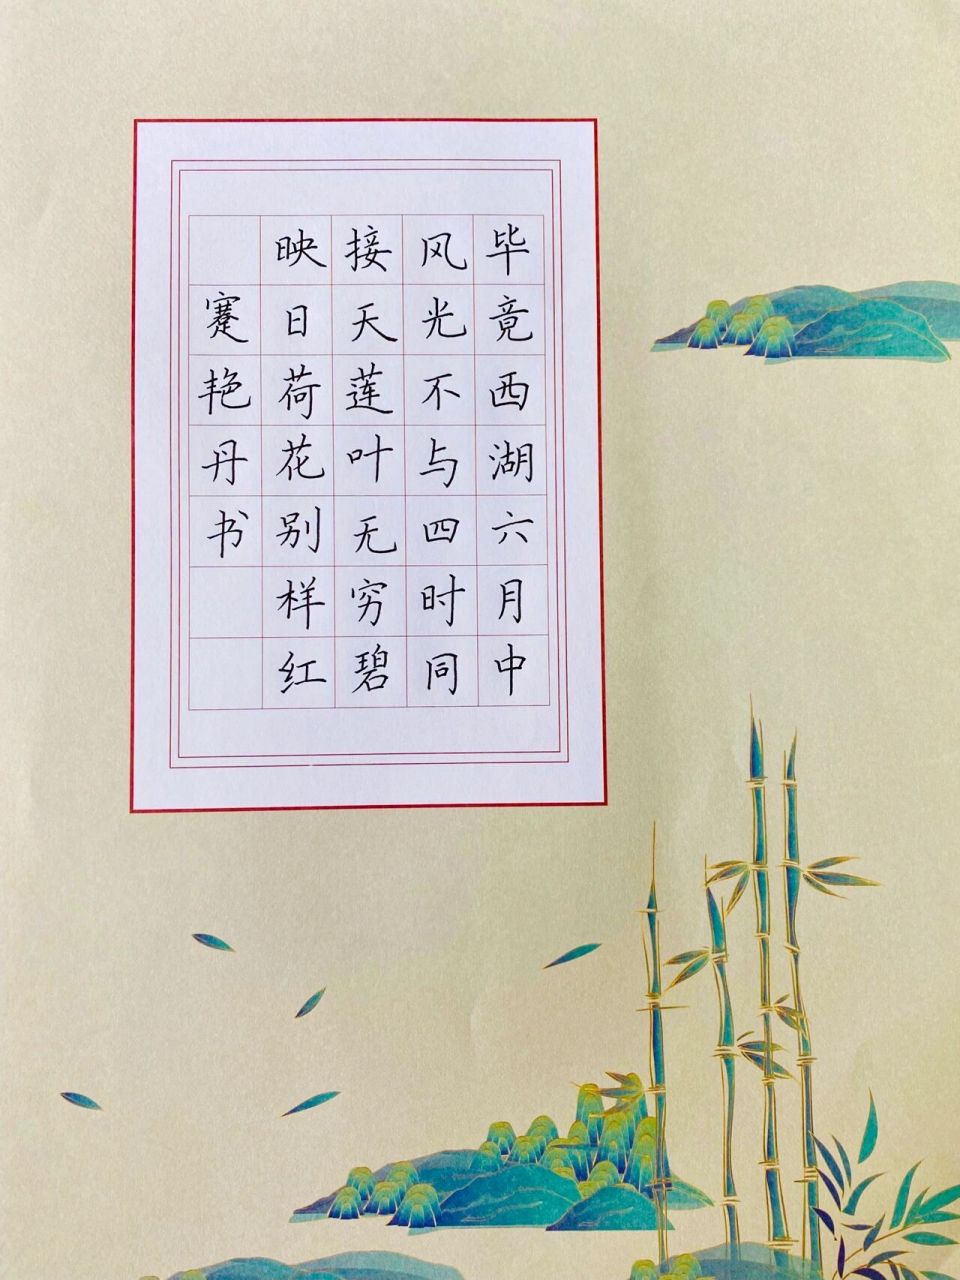 毕竟西湖六月中
风光不与四时同
接天莲叶无穷碧
映日荷花别样红
蹇艳丹书